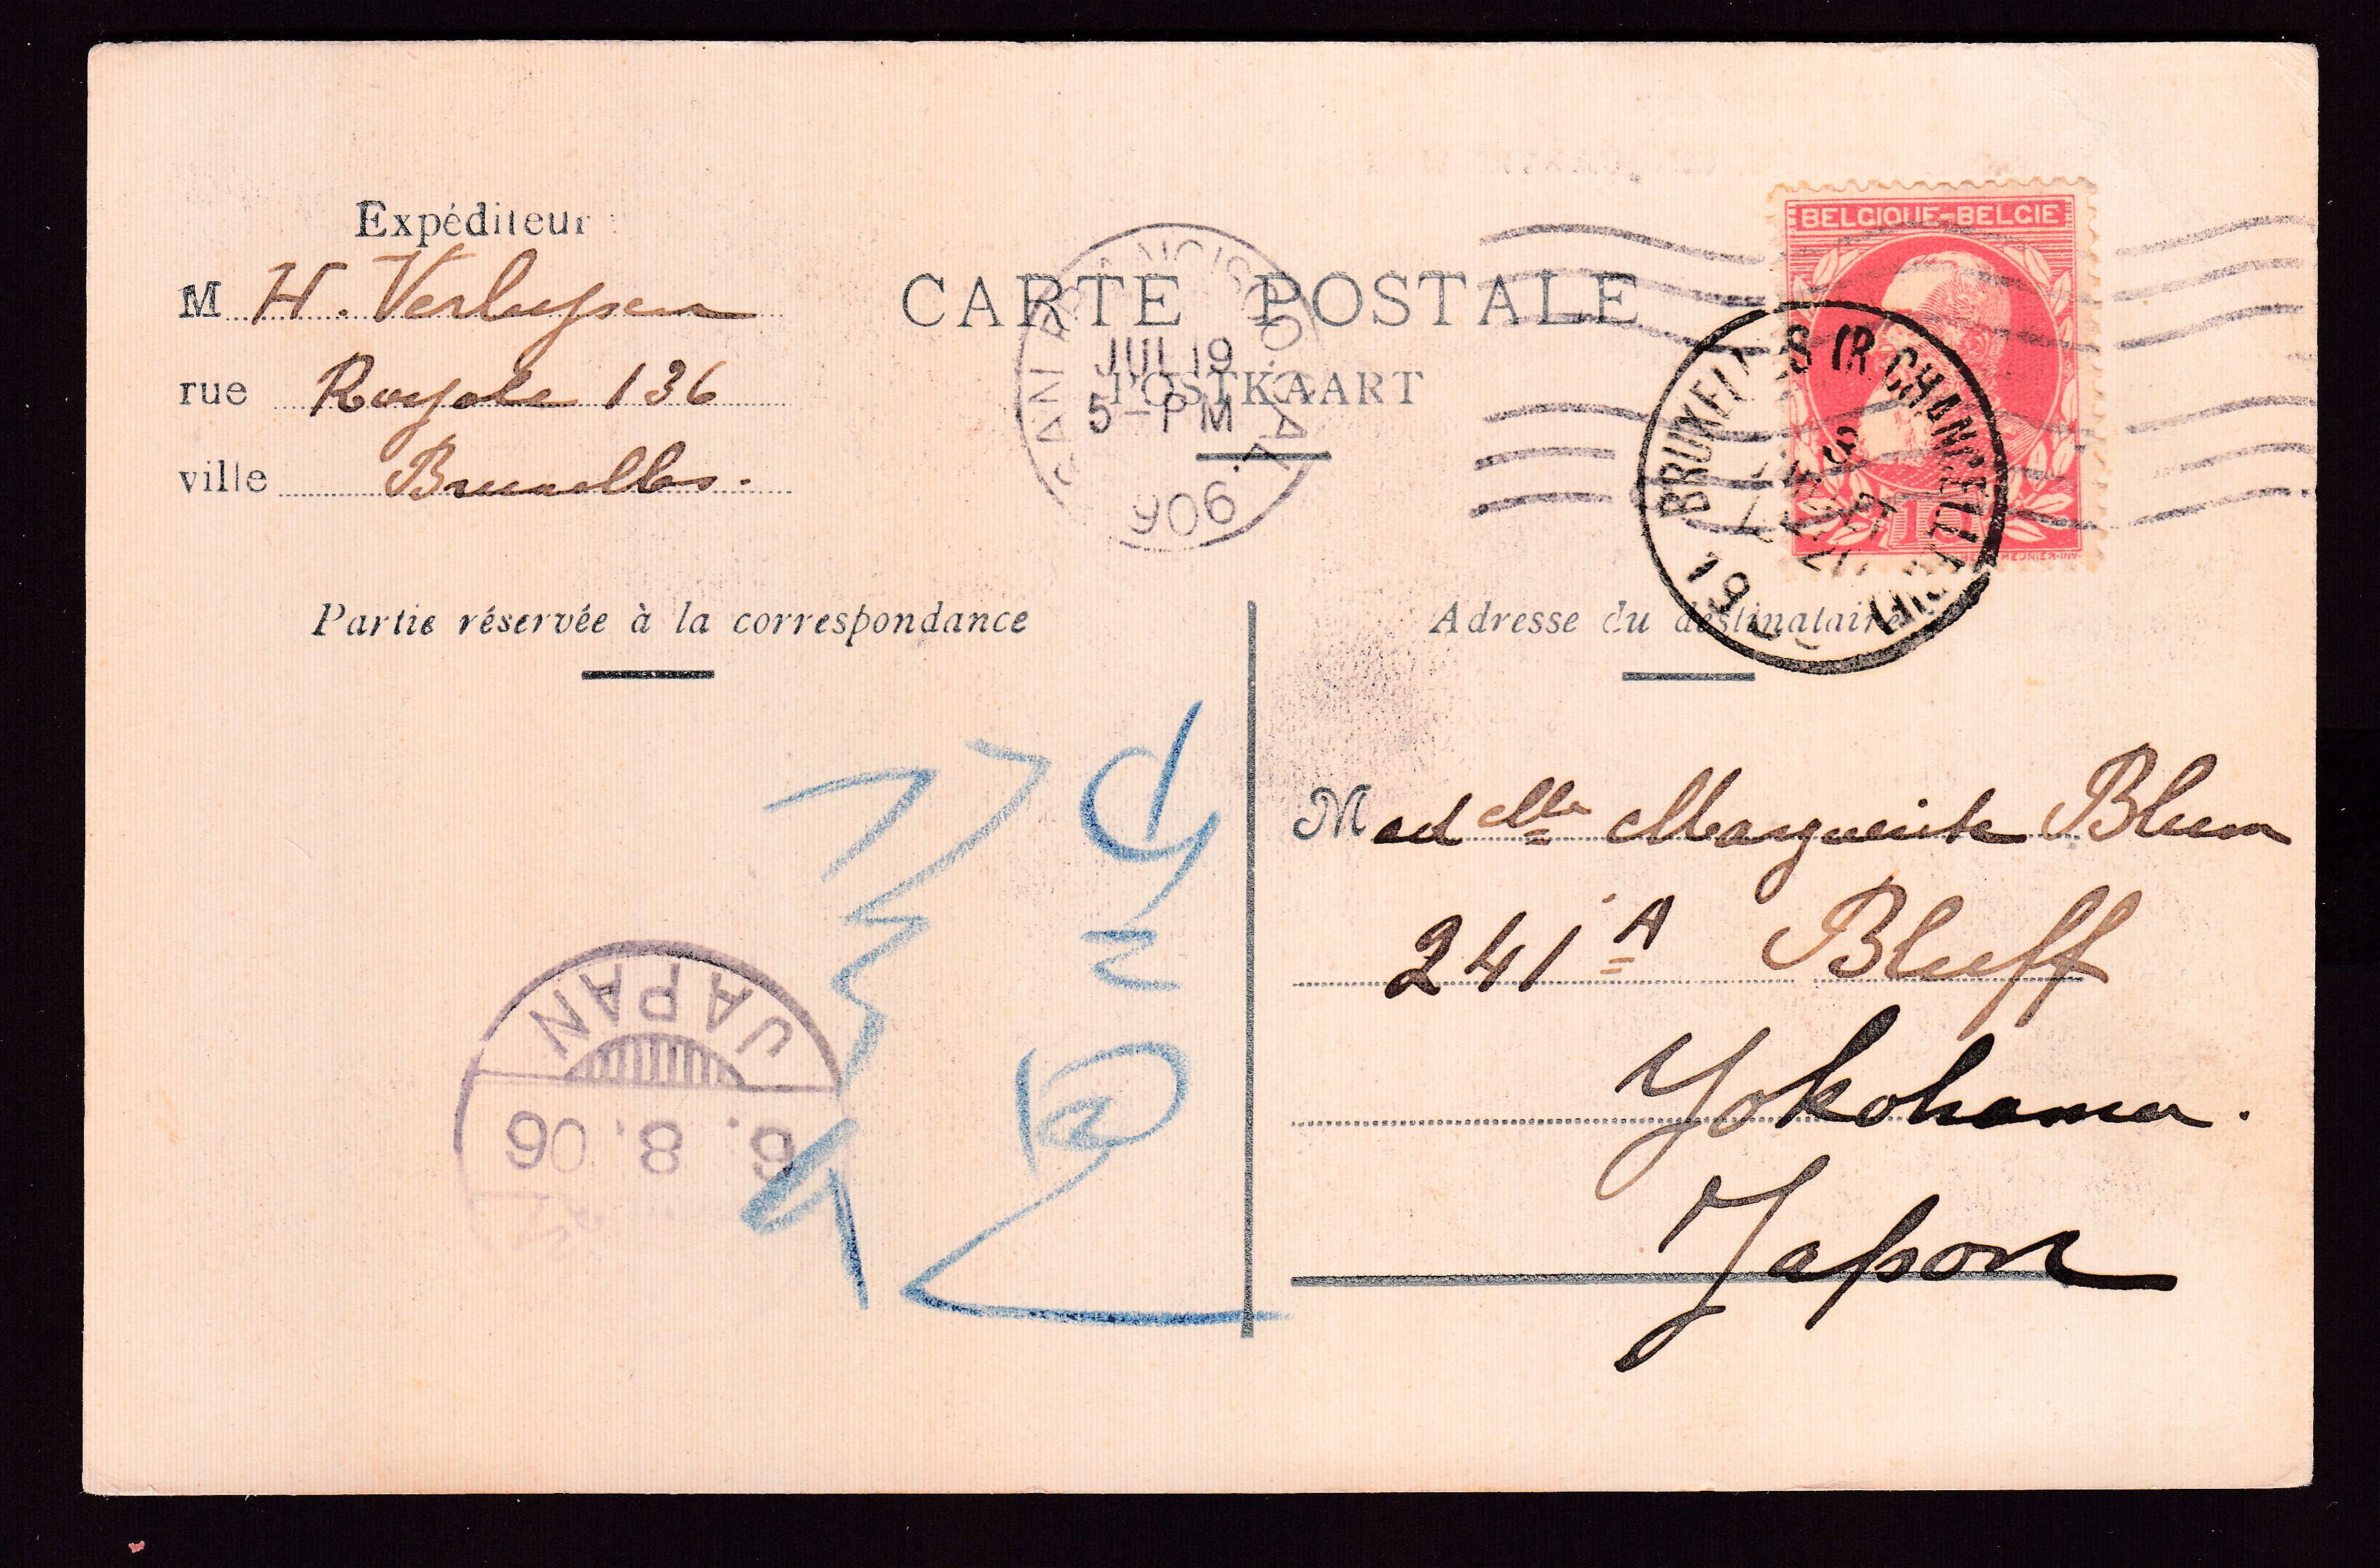 Expéditeur
M H. Verluysen
rue Royale 136
ville Bruxelles.
CARTE POSTALE
POSTKAART
SAN FRANCISCO, CAL.
JUL 19
5-PM
906
BELGIQUE-BELGIE
10
BRUXELLES (R CHANCELLERIE)
Partie réservée à la correspondance
Adresse du destinataire
Madelle Marguerite Blum
241 A Bluff
Yokohama.
Japon
JAPAN
6.8.06